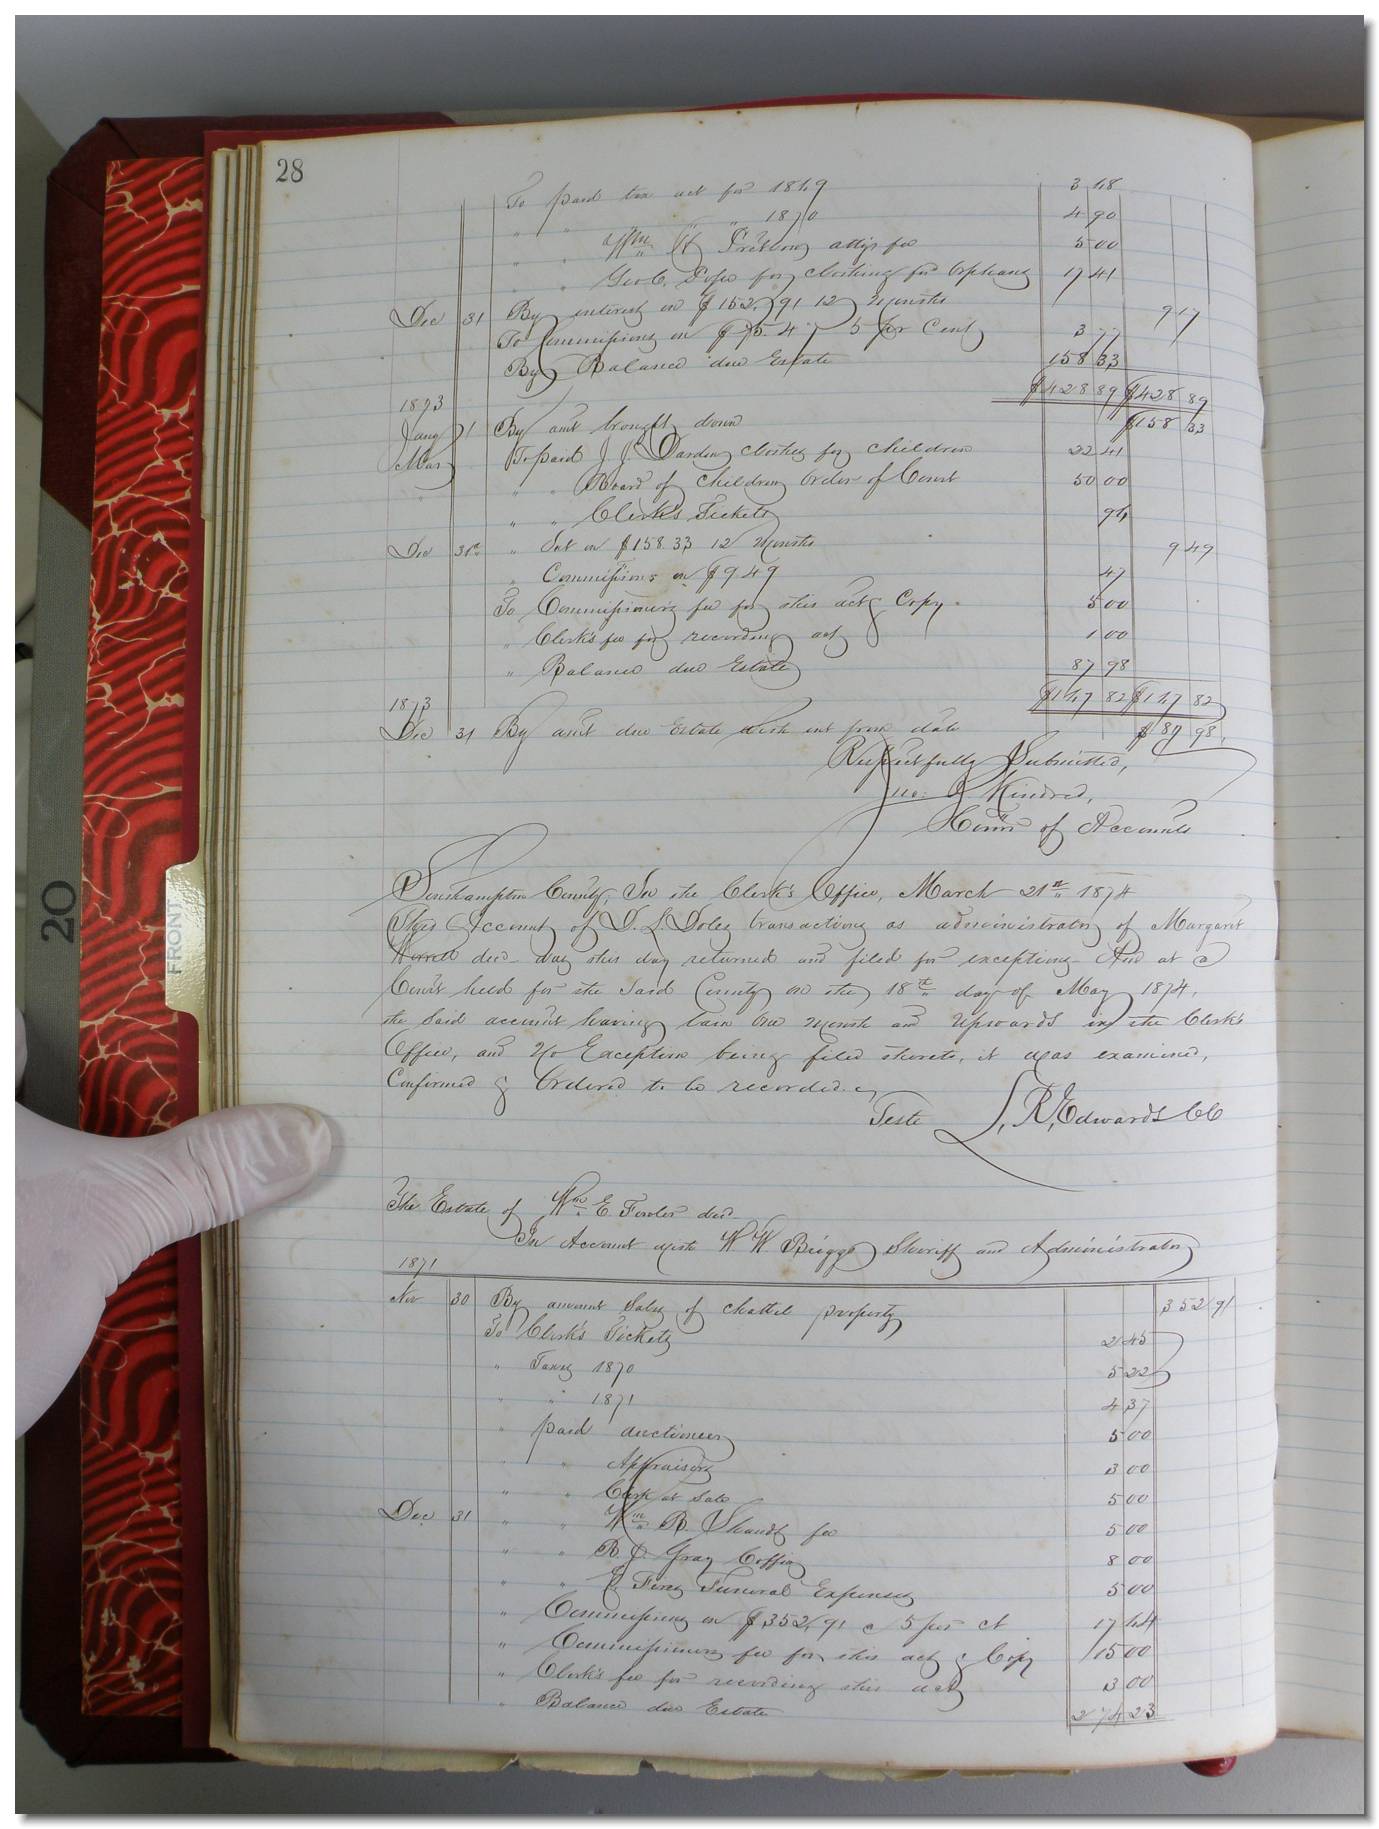 28
To paid tax act for 1869 3 68
" " " " 1870 4 90
" " Wm H Pretlow attys fee 5 00
" " Geo C. Pope for clothing for Orphans 17 41
Dec 31 By interest on $152.91 12 Months 9 17
To Commissions on $75.47 5 per Cent 3 77
By Balance due Estate 158 33
$428 89 $428 89
1873
Jany 1 By amt brought down $158 33
Mar To paid J. J. Darden clothes for children 22 41
" " " Board of Children Order of Court 50 00
" " Clerk's Tickets 96
Dec 31st " Int on $158.33 12 Months 9 49
" Commissions on $9.49 47
To Commissioners fee for this act & Copy 5 00
" Clerk's fee for recording act 1 00
" Balance due Estate 87 98
$167 82 $167 82
1873
Dec 31 By amt due Estate with int from date $87 98
Respectfully Submitted,
Jno. J. Kindred,
Comr of Accounts
Southampton County, In the Clerk's Office, March 21st 1874
This Account of D. L. Doles transactions as administrator of Margaret
Worrell decd was this day returned and filed for exceptions And at a
Court held for the said County on the 18th day of May 1874,
the said account having lain One Month and Upwards in the Clerk's
Office, and No Exception being filed thereto, it was examined,
Confirmed & Ordered to be recorded.
Teste L. R. Edwards CC
The Estate of Wm E. Fowler decd
In Account with W W Briggs Sheriff and Administrator
1871
Nov 30 By amount Sales of chattel property 352 91
To Clerk's Tickets 2 45
" Taxes 1870 5 22
" " 1871 4 37
" paid auctioneer 5 00
" " Appraisers 3 00
" " Clerk at Sale 5 00
Dec 31 " " Wm B. Shands fee 5 00
" " R. J. Gray Coffin 8 00
" " Funeral Expenses 5 00
" Commissions on $352.91 @ 5 per ct 17 64
" Commissioners fee for this act & Copy 15 00
" Clerk's fee for recording this act 3 00
" Balance due Estate 274 23
FRONT
20